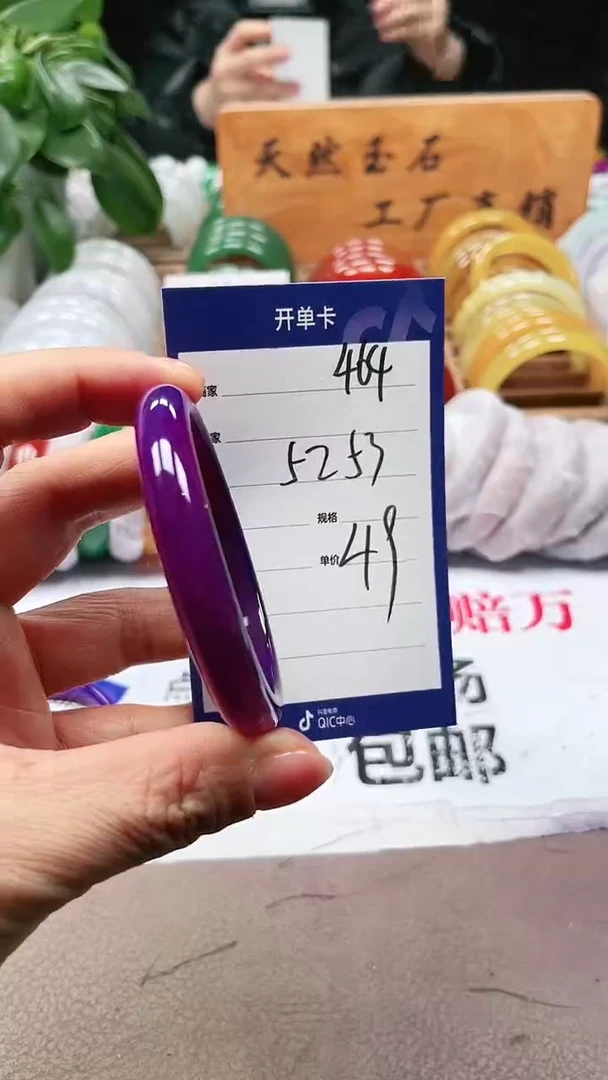 天然玉石
工厂直销
开单卡
464
家
家
5253
规格
单价 49
抖音电商
QIC中心
赔万
场
包邮